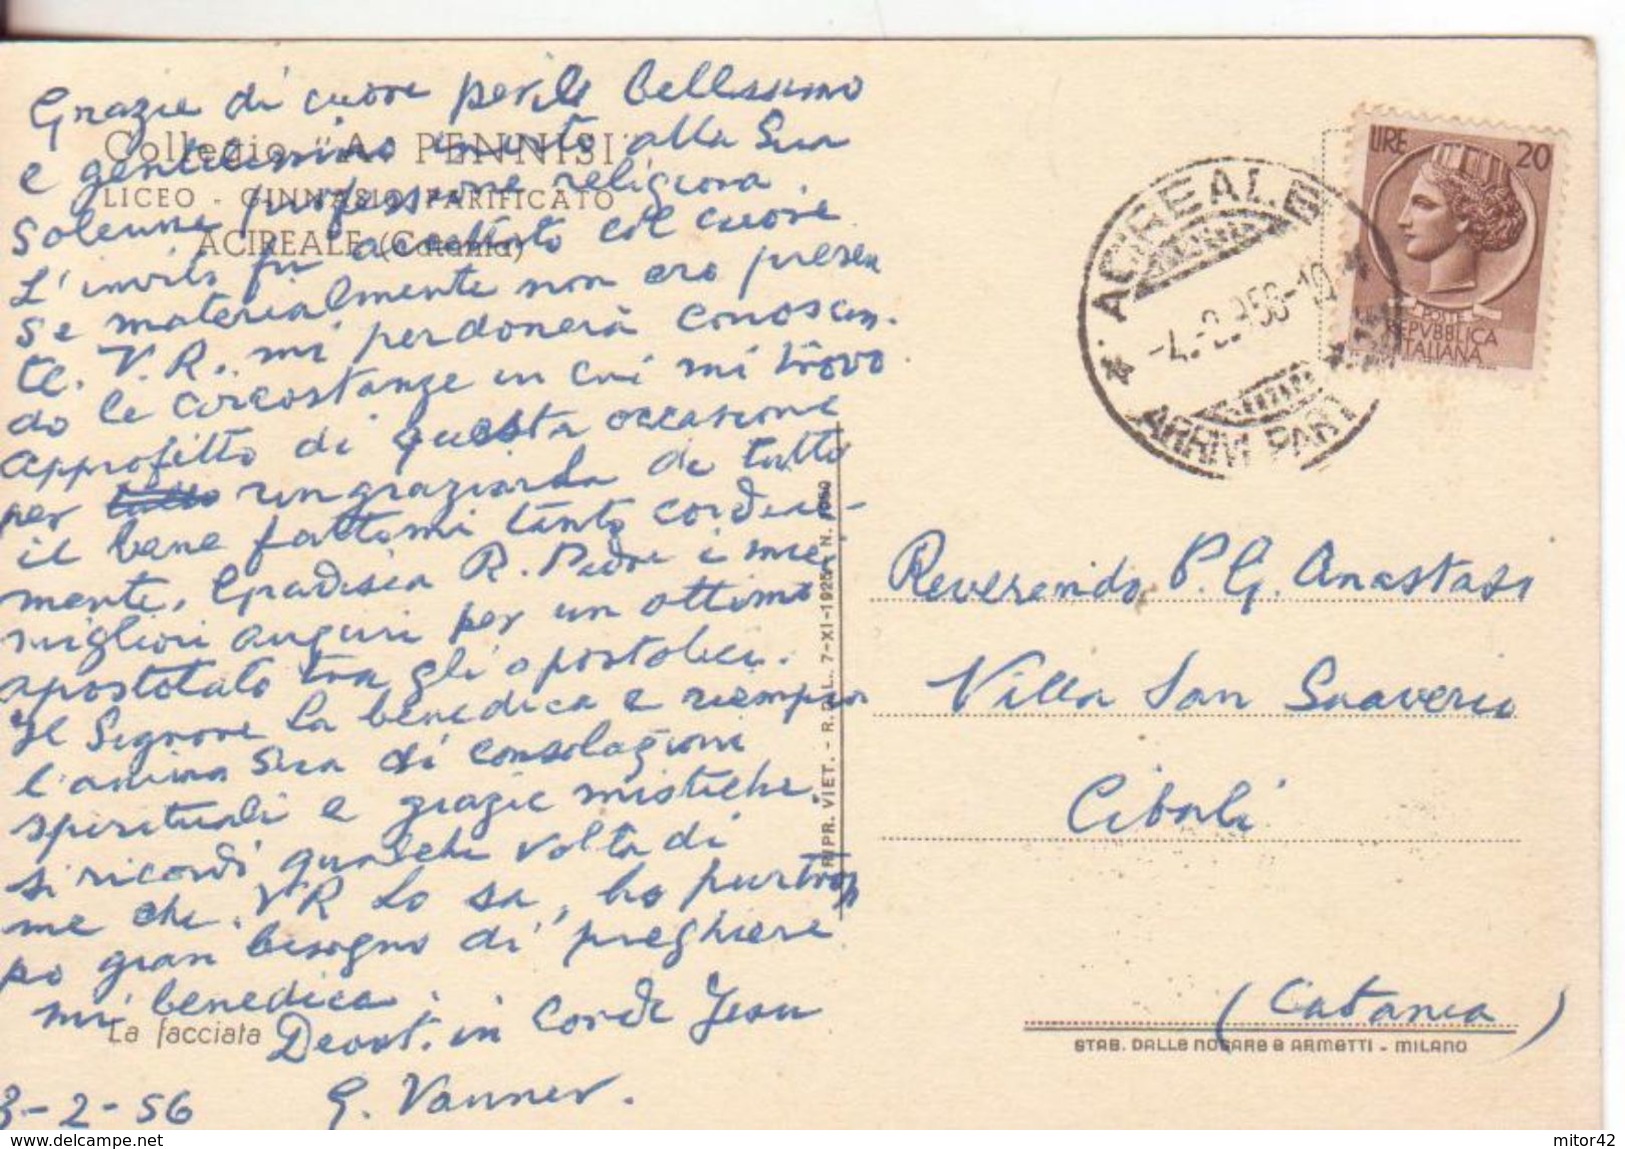 Grazie di cuore per il bellissimo
e gentilissimo invito alla Sua
solenne professione religiosa.
L'invito fu accettato col cuore
se materialmente non ero presen
te. V. R. mi perdonerà conoscen-
do le circostanze in cui mi trovo
approfitto di questa occasione
per ringraziarla di tutto
il bene fattomi tanto cordial-
mente. Gradisca R. Padre i miei
migliori auguri per un ottimo
apostolato tra gli apostolici.
Il Signore La benedica e riempia
l'anima Sua di consolazioni
spirituali e grazie mistiche.
si ricordi qualche volta di
me che. VR Lo sa, ho purtrop
po gran bisogno di preghiere
mi benedica.
Devot. in Corde Jesu
G. Vanner.
3-2-56
Collegio "A. PENNISI"
LICEO - GINNASIO PARIFICATO
ACIREALE (Catania)
La facciata
RIPR. VIET. - R. DAL. 7-XI-1925 - N.
LIRE 20
POSTE
REPVBBLICA
ITALIANA
ACIREALE
-4.-2.956-10
ARRIVI PART
Reverendo P. G. Anastasi
Villa San Saverio
Cibali
(Catania)
STAB. DALLE NOGARE E ARMETTI - MILANO
mitor42